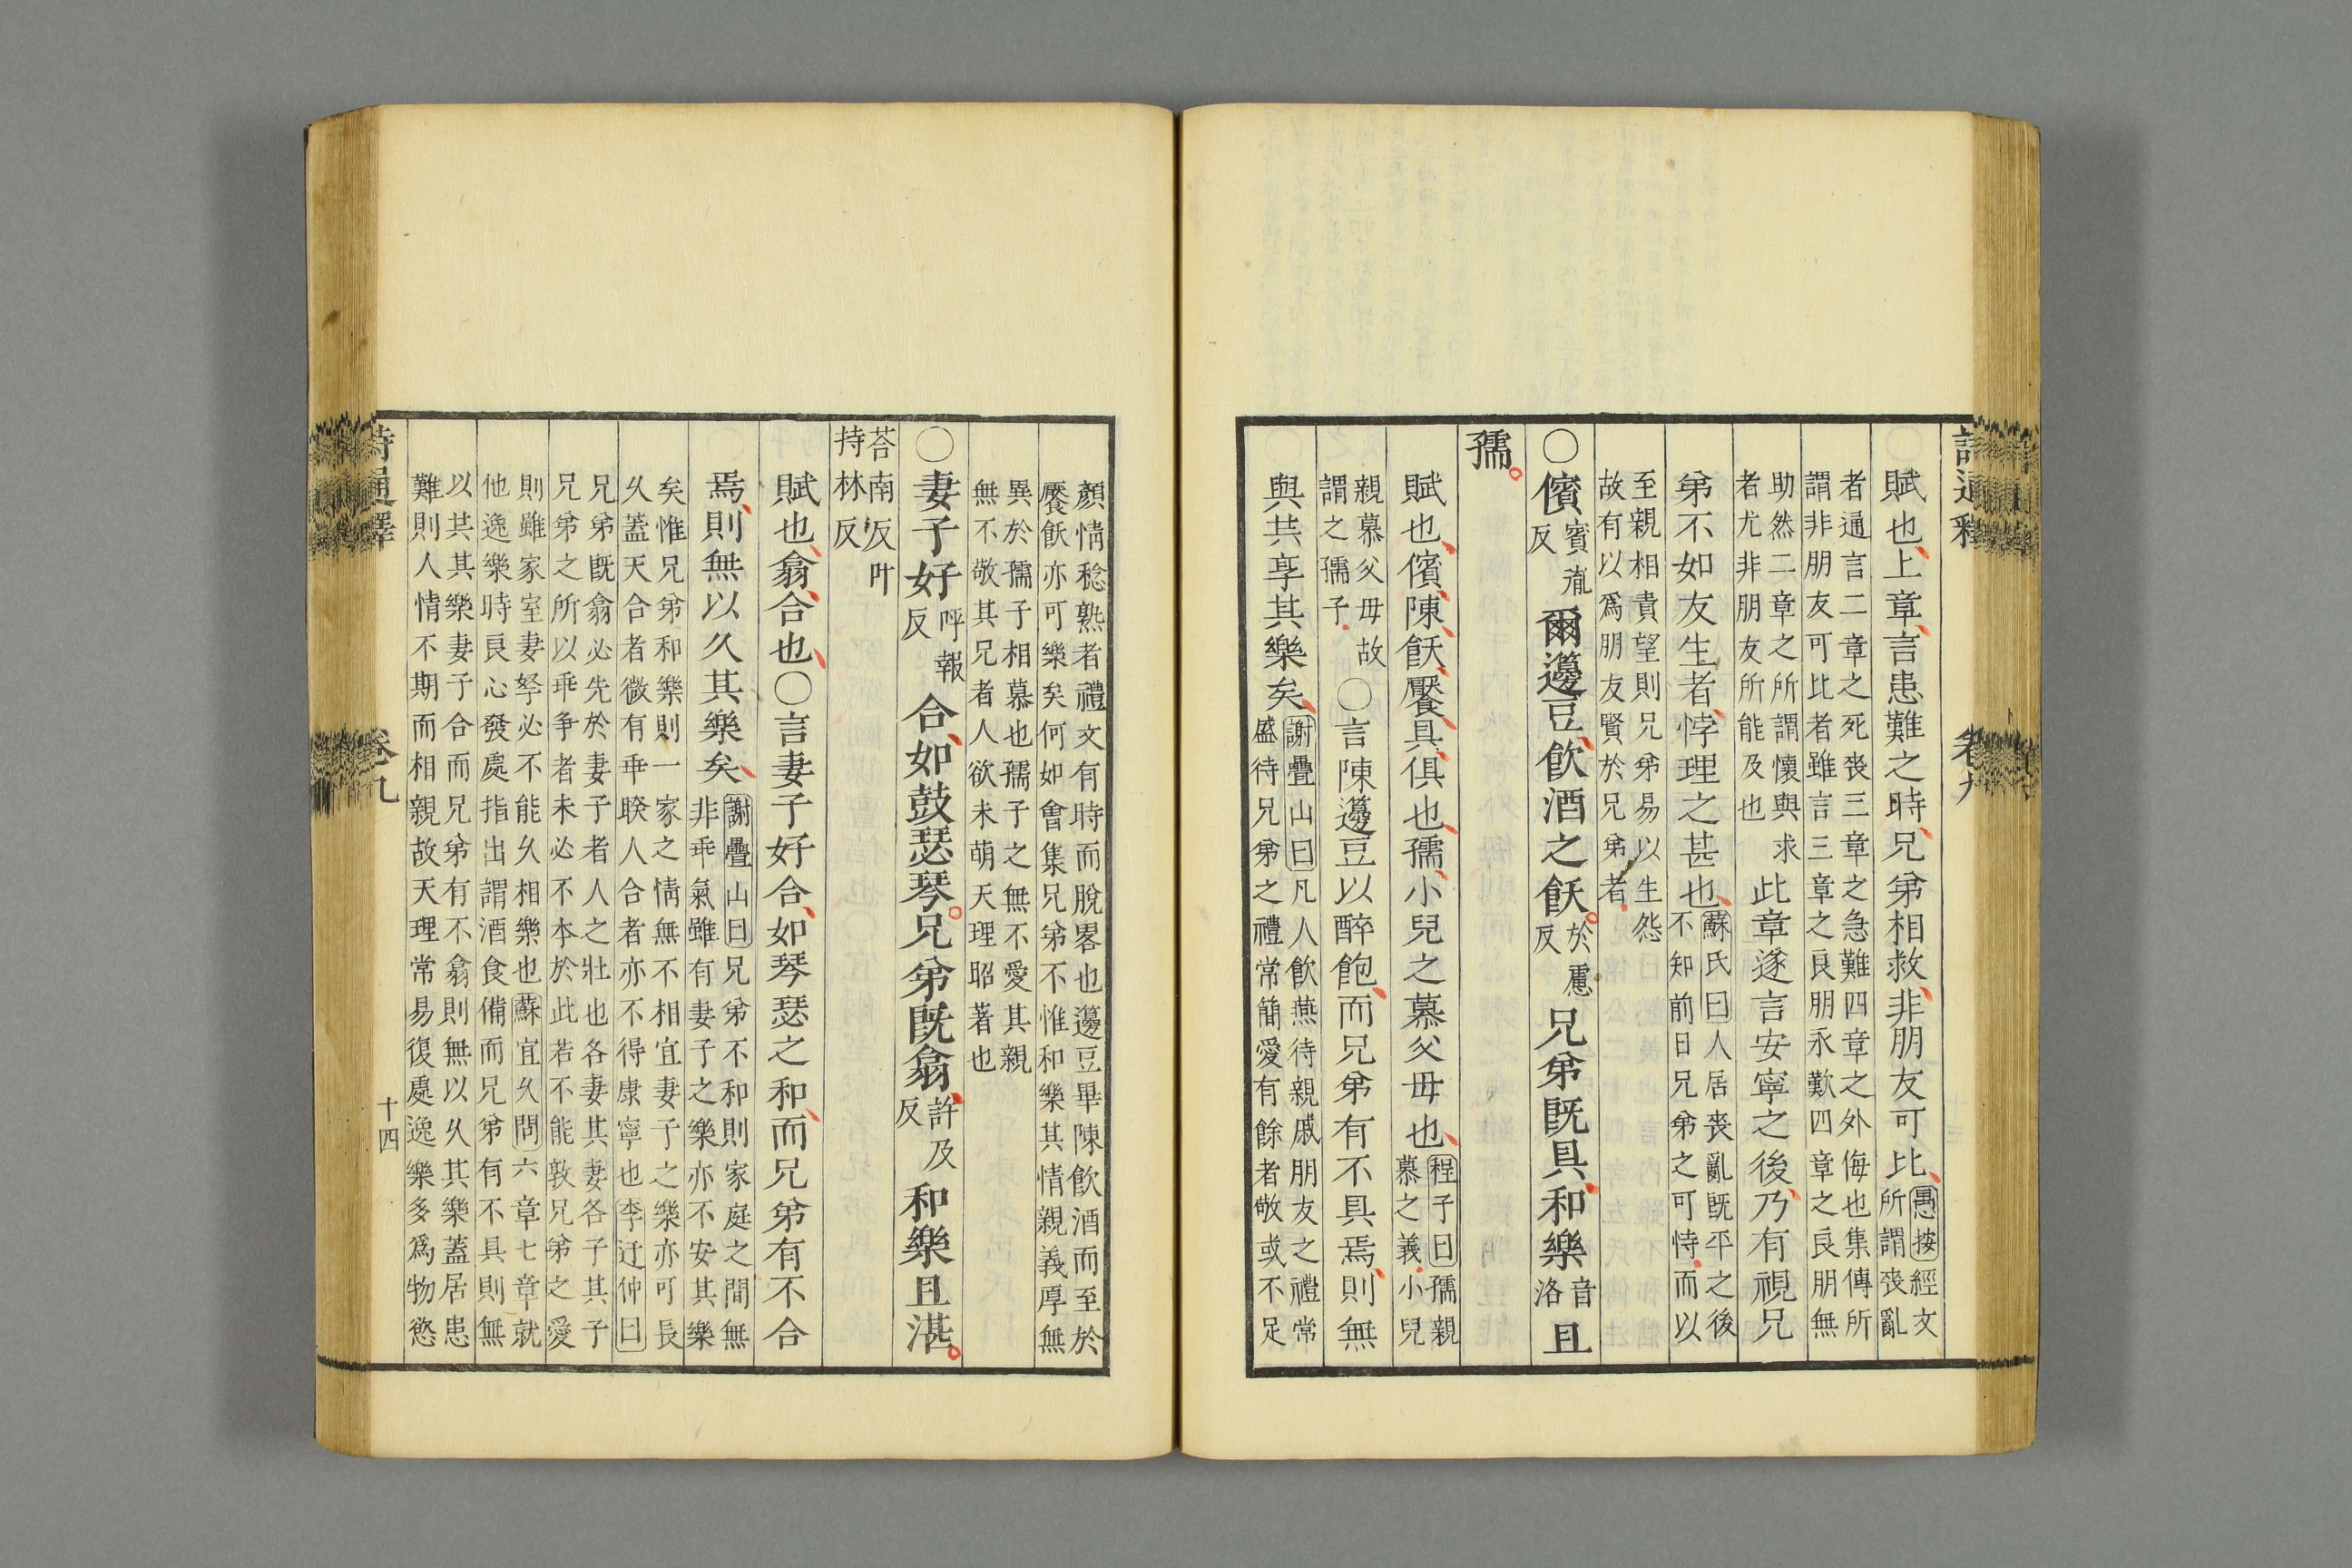 賦也上章言患難之時兄弟相救非朋友可比愚按經文
所謂喪亂
者通言二章之死喪三章之急難四章之外侮也集傳所
謂非朋友可比者雖言三章之良朋永歎四章之良朋無
助然二章之所謂懷與求
者尤非朋友所能及也
此章遂言安寧之後乃有視兄
弟不如友生者悖理之甚也蘇氏曰人居喪亂旣平之後
不知前日兄弟之可恃而以
至親相責望則兄弟易以生怨
故有以爲朋友賢於兄弟者
○儐賓胤
反爾籩豆飮酒之飫於慮
反兄弟旣具和樂音
洛且
孺
賦也儐陳飫饜具俱也孺小兒之慕父母也程子曰孺親
慕之義小兒
親慕父母故
謂之孺子○言陳籩豆以醉飽而兄弟有不具焉則無
與共享其樂矣謝疊山曰凡人飮燕待親戚朋友之禮常
盛待兄弟之禮常簡愛有餘者敬或不足
顏情稔熟者禮文有時而脫畧也籩豆畢陳飮酒而至於
饜飫亦可樂矣何如會集兄弟不惟和樂其情親義厚無
異於孺子相慕也孺子之無不愛其親
無不敬其兄者人欲未萌天理昭著也
○妻子好呼報
反合如鼓瑟琴兄弟旣翕許及
反和樂且湛
荅南反叶
持林反
賦也翕合也○言妻子好合如琴瑟之和而兄弟有不合
焉則無以久其樂矣謝疊山曰兄弟不和則家庭之間無
非乖氣雖有妻子之樂亦不安其樂
矣惟兄弟和樂則一家之情無不相宜妻子之樂亦可長
久蓋天合者微有乖睽人合者亦不得康寧也李迂仲曰
兄弟旣翕必先於妻子者人之壯也各妻其妻各子其子
兄弟之所以乖爭者未必不本於此若不能敦兄弟之愛
則雖家室妻孥必不能久相樂也蘇宜久問六章七章就
他逸樂時良心發處指出謂酒食備而兄弟有不具則無
以共其樂妻子合而兄弟有不翕則無以久其樂蓋居患
難則人情不期而相親故天理常易復處逸樂多爲物慾
詩通釋
卷九
十四